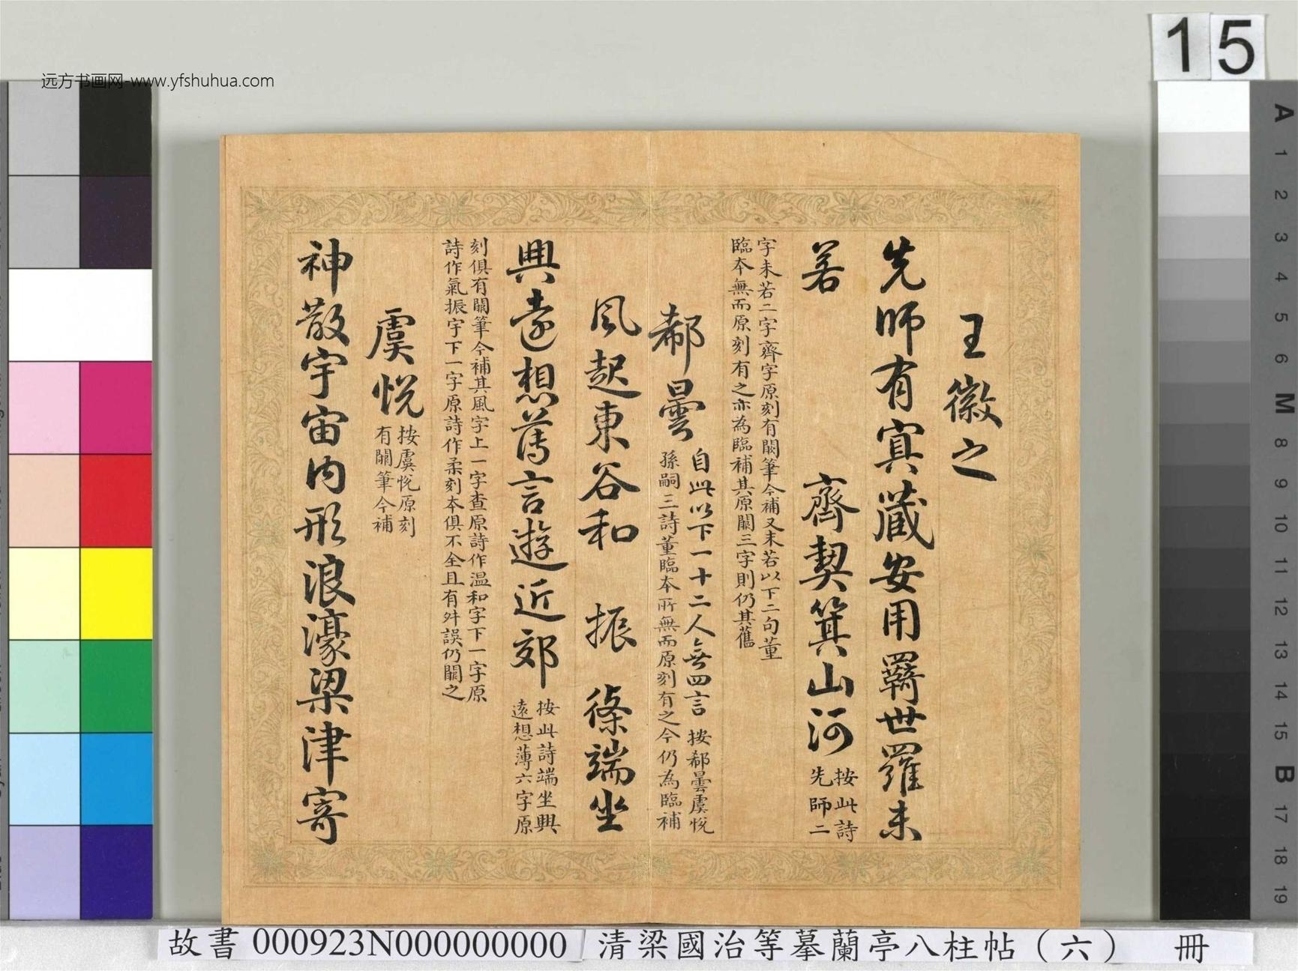 远方书画网-www.yfshuhua.com
15
王徽之
先師有冥藏安用羈世羅未
若 齊契箕山河 按此詩先師二
字未若二字齊字原刻有闕筆今補又未若以下二句董
臨本無而原刻有之亦為臨補其原闕三字則仍其舊
郗曇 自此以下一十二人無四言 按郗曇虞悅
孫嗣三詩董臨本所無而原刻有之今仍為臨補
風起東谷和 振 條端坐
興遠想薄言遊近郊 按此詩端坐興
遠想薄六字原
刻俱有闕筆今補其風字上一字查原詩作温和字下一字原
詩作氣振字下一字原詩作柔刻本俱不全且有舛誤仍闕之
虞悅 按虞悅原刻
有闕筆今補
神散宇宙內形浪濠梁津寄
A 1 2 3 4 5 6 M 8 9 10 11 12 13 14 15 B 17 18 19
故書 000923N000000000 清梁國治等摹蘭亭八柱帖（六） 冊